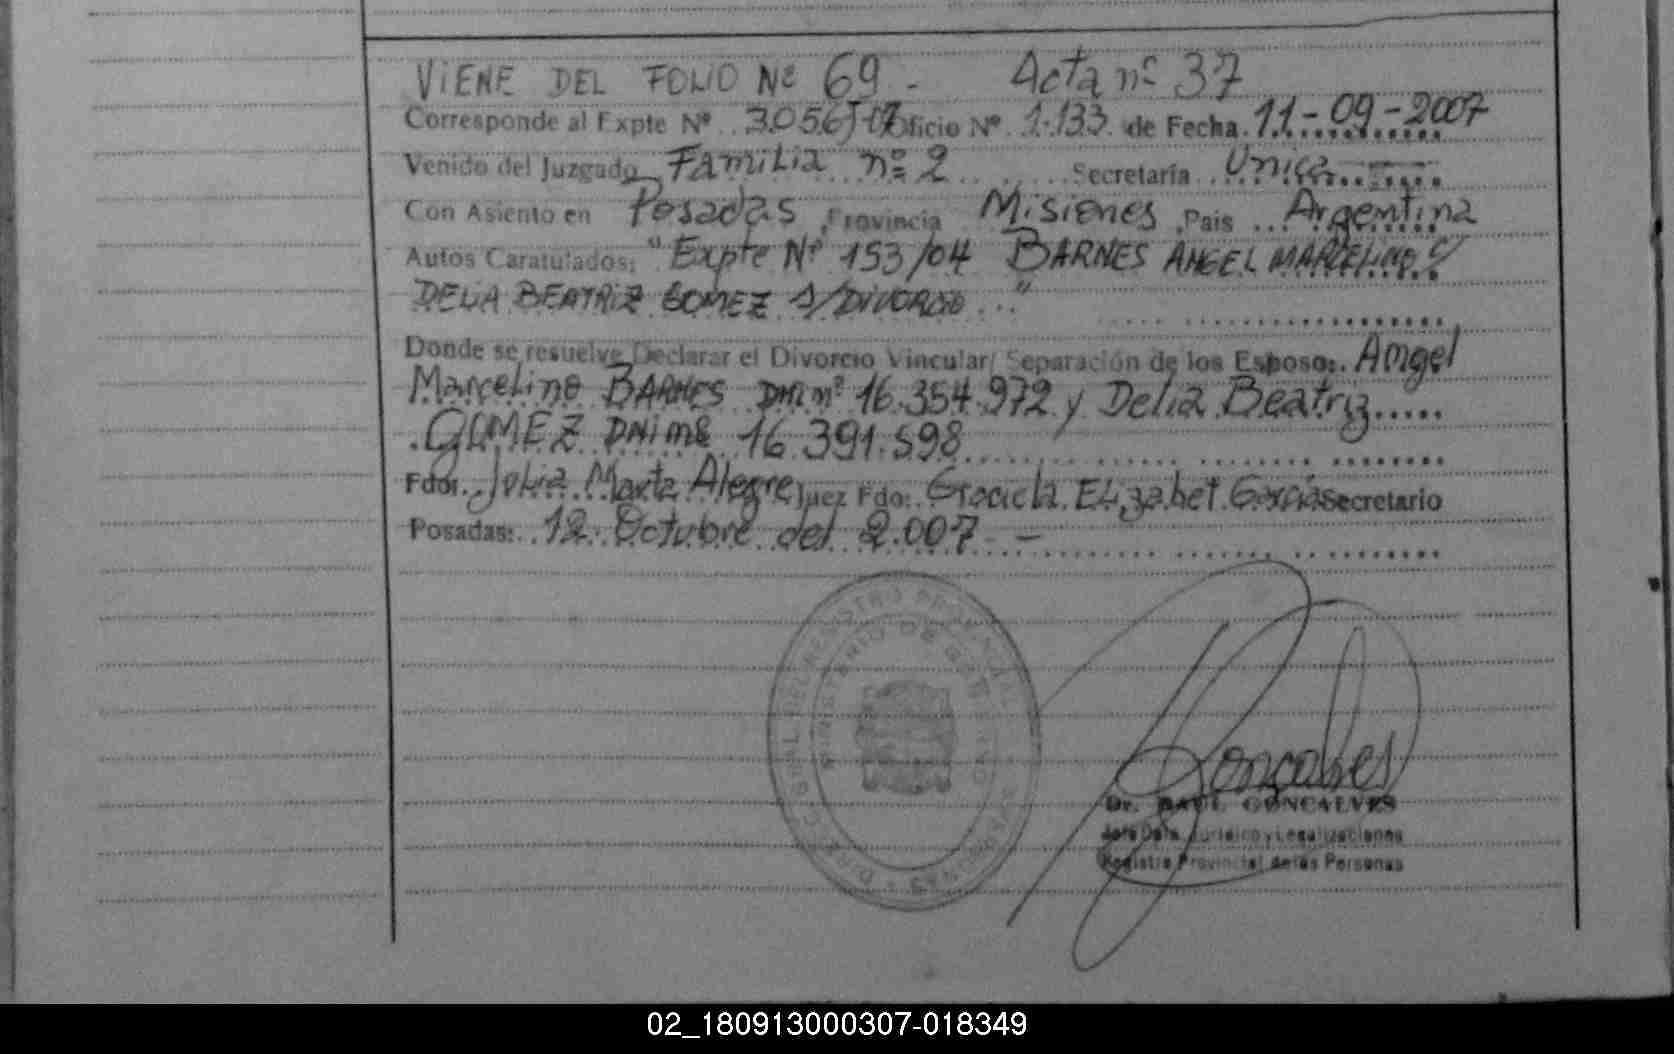 VIENE DEL FOLIO Nº 69 - Acta nº 37
Corresponde al Expte Nº 3056 Oficio Nº 1.133 de Fecha 11-09-2007
Venido del Juzgado Familia nº 2 Secretaría Unica
Con Asiento en Posadas, Provincia Misiones, País Argentina
Autos Caratulados: "Expte Nº 153/04 BARNES ANGEL MARCELINO C/
DELIA BEATRIZ GOMEZ S/DIVORCIO"
Donde se resuelve Declarar el Divorcio Vincular/ Separación de los Esposo: Angel
Marcelino BARNES DNI nº 16.354.972 y Delia Beatriz
GOMEZ DNI nº 16.391.598
Fdo: Julia Marta Alegre Juez Fdo: Graciela Elizabet Garcia Secretario
Posadas: 12 Octubre del 2.007 -
DIRECC. GRAL. DEL REGISTRO PROVINCIAL
MINISTERIO DE GOBIERNO
MISIONES
Goncalves
Dr. RAUL GONCALVES
Jefe Dpto. Jurídico y Legalizaciones
Registro Provincial de las Personas
02_180913000307-018349